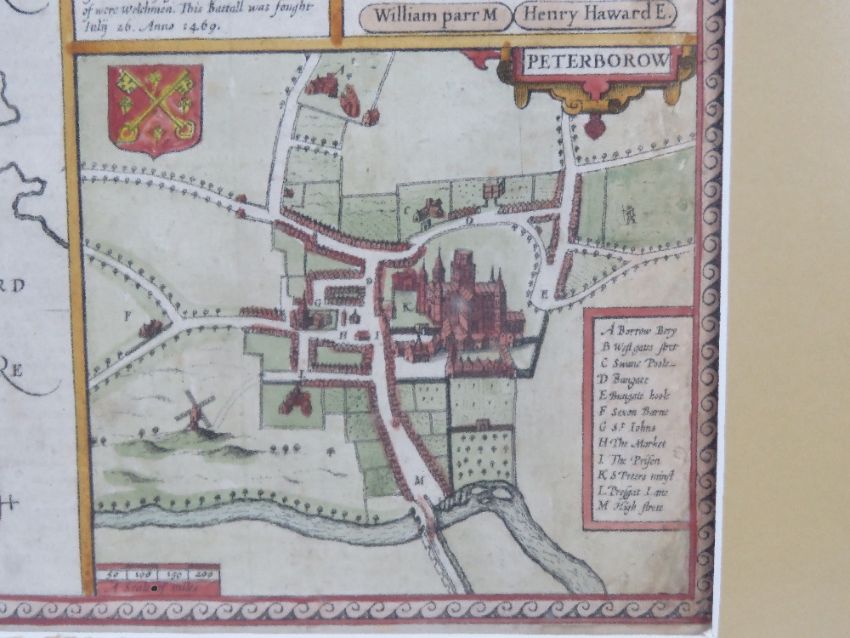 of were Welchmen. This Battall was fought
July 26. Anno 1469.
William parr M
Henry Haward E.
PETERBOROW
RD
RE
A
C
D
D
E
F
G
K
H
I
L
M
A Borrow Bery
B Westgates stret
C Swans Poole
D Bungate
E Bungate hoole
F Sexon Barne
G St Iohns
H The Market
I The Prison
K S Peters minst
L Presgat Lane
M High strete
50 100 150 200
A Scale of